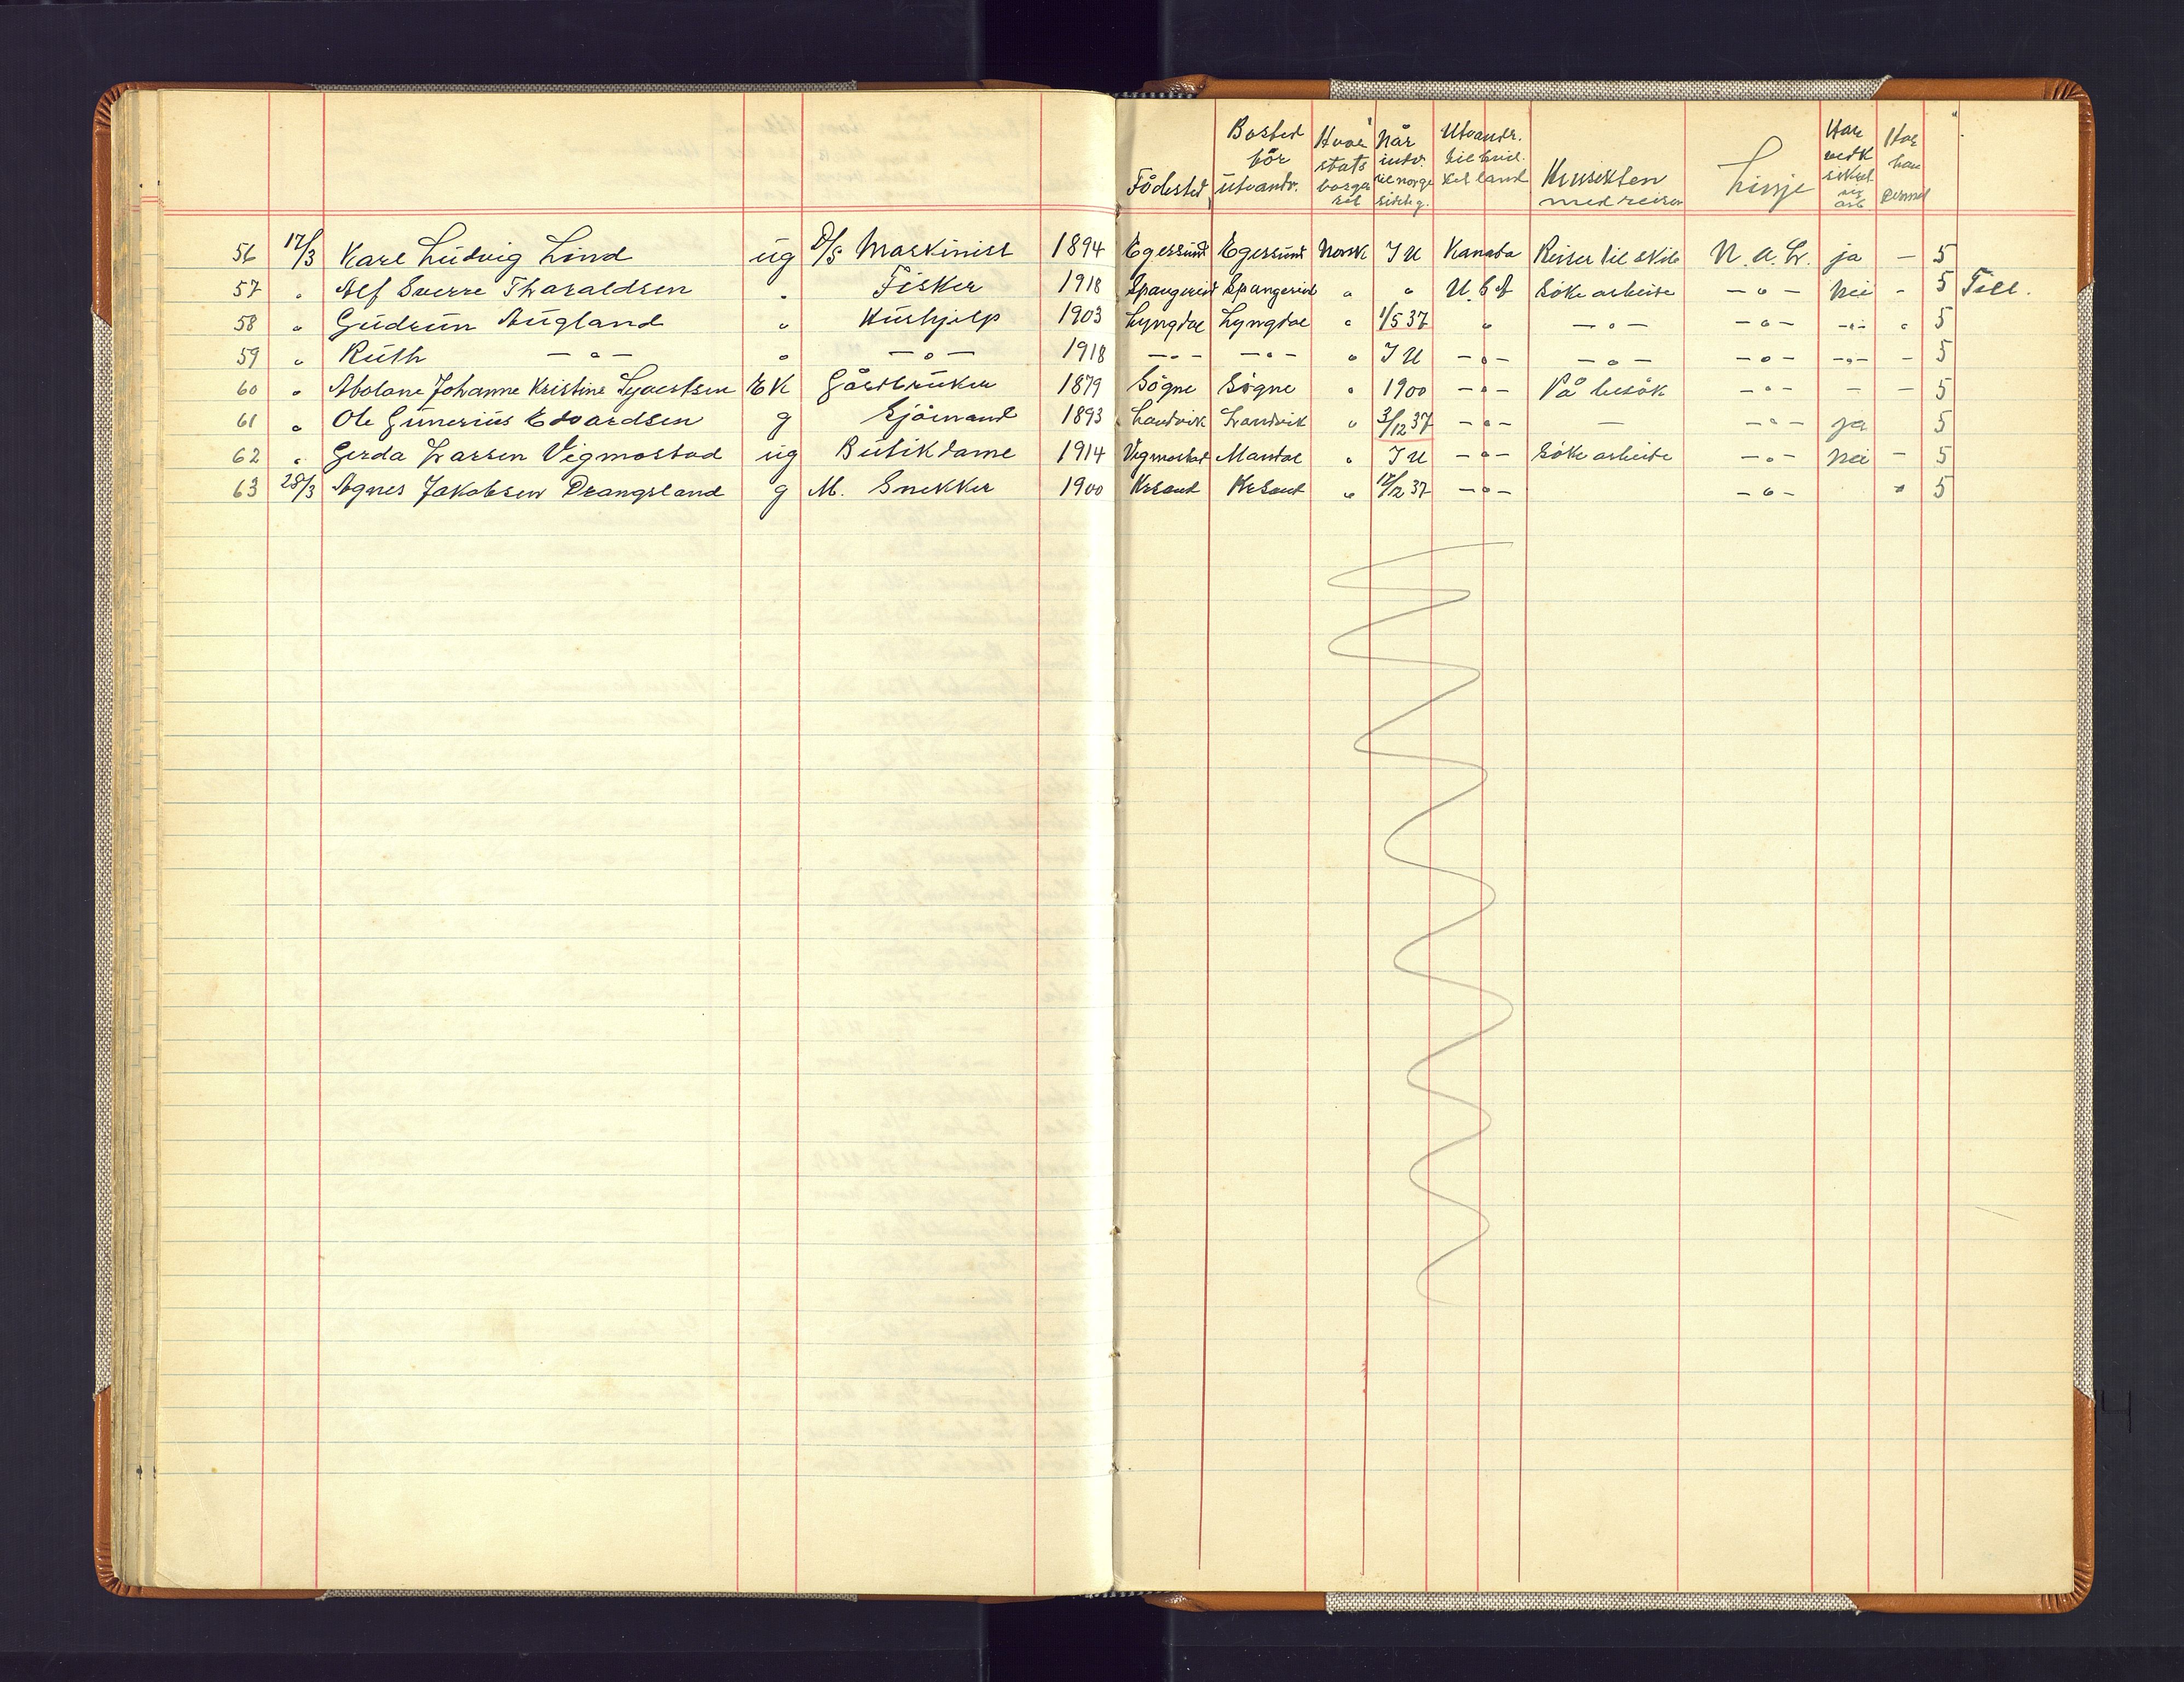 Födested Bosted för utvandr. Hvor stats borger ret Når indv. til norge sidstg. Utvandr. til hvil ket land Hensikten med reisen Linje Har vedk sikret sig arb. Har han
56 17/3 Karl Ludvig Lind ug D/S Maskinist 1894 Egersund Egersund Norsk I U Kanada Reiser til skib N. A. L. ja — 5
57 " Alf Sverre Tharaldsen " Fisker 1918 Spangereid Spangereid " " U.S.A Söke arbeide — " — Nei - 5 Fell.
58 " Gudrun Augland " Hushjelp 1903 Lyngdal Lyngdal " 1/5 37 " — " — — " — — " — " 5
59 " Ruth — " — " — " — 1918 — " — — " — " I U — " — — " — — " — — " — — 5
60 " Abolone Johanne Kristine Syvertsen EK Gårdbruker 1879 Sögne Sögne " 1900 — " — På besök — " — — — 5
61 " Ole Gunerius Edvardsen g Sjömand 1893 Landvik Landvik " 3/12 37 — " — — — " — ja 5
62 " Gerda Larsen Vigmostad ug Butikdame 1914 Vigmostad Mandal " I U — " — Söke arbeide — " — Nei — 5
63 28/3 Agnes Jakobsen Drangsland g M. Snekker 1900 KrSand KrSand " 12/2 37 — " — — " — " 5